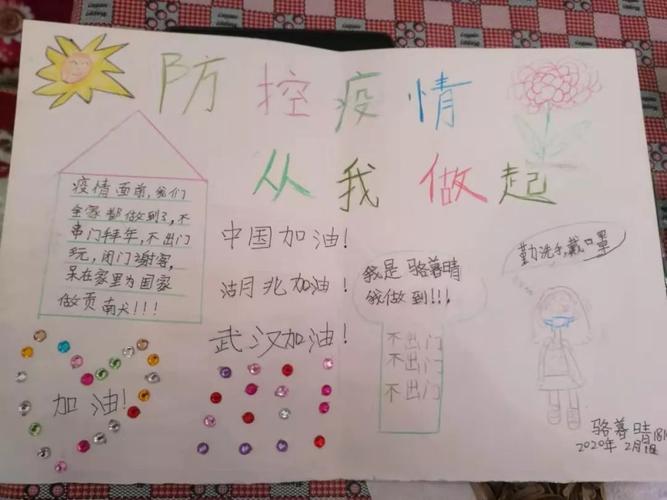 防控疫情
从我做起
疫情面前，我们
全家都做到了，不
串门拜年，不出门
玩，闭门谢客，
呆在家里为国家
做贡献!!!
中国加油!
湖北加油!
武汉加油!
加油!
我是 骆暮晴
我做到!!!
不出门
不出门
不出门
勤洗手,戴口罩
骆暮晴
2020年 2月